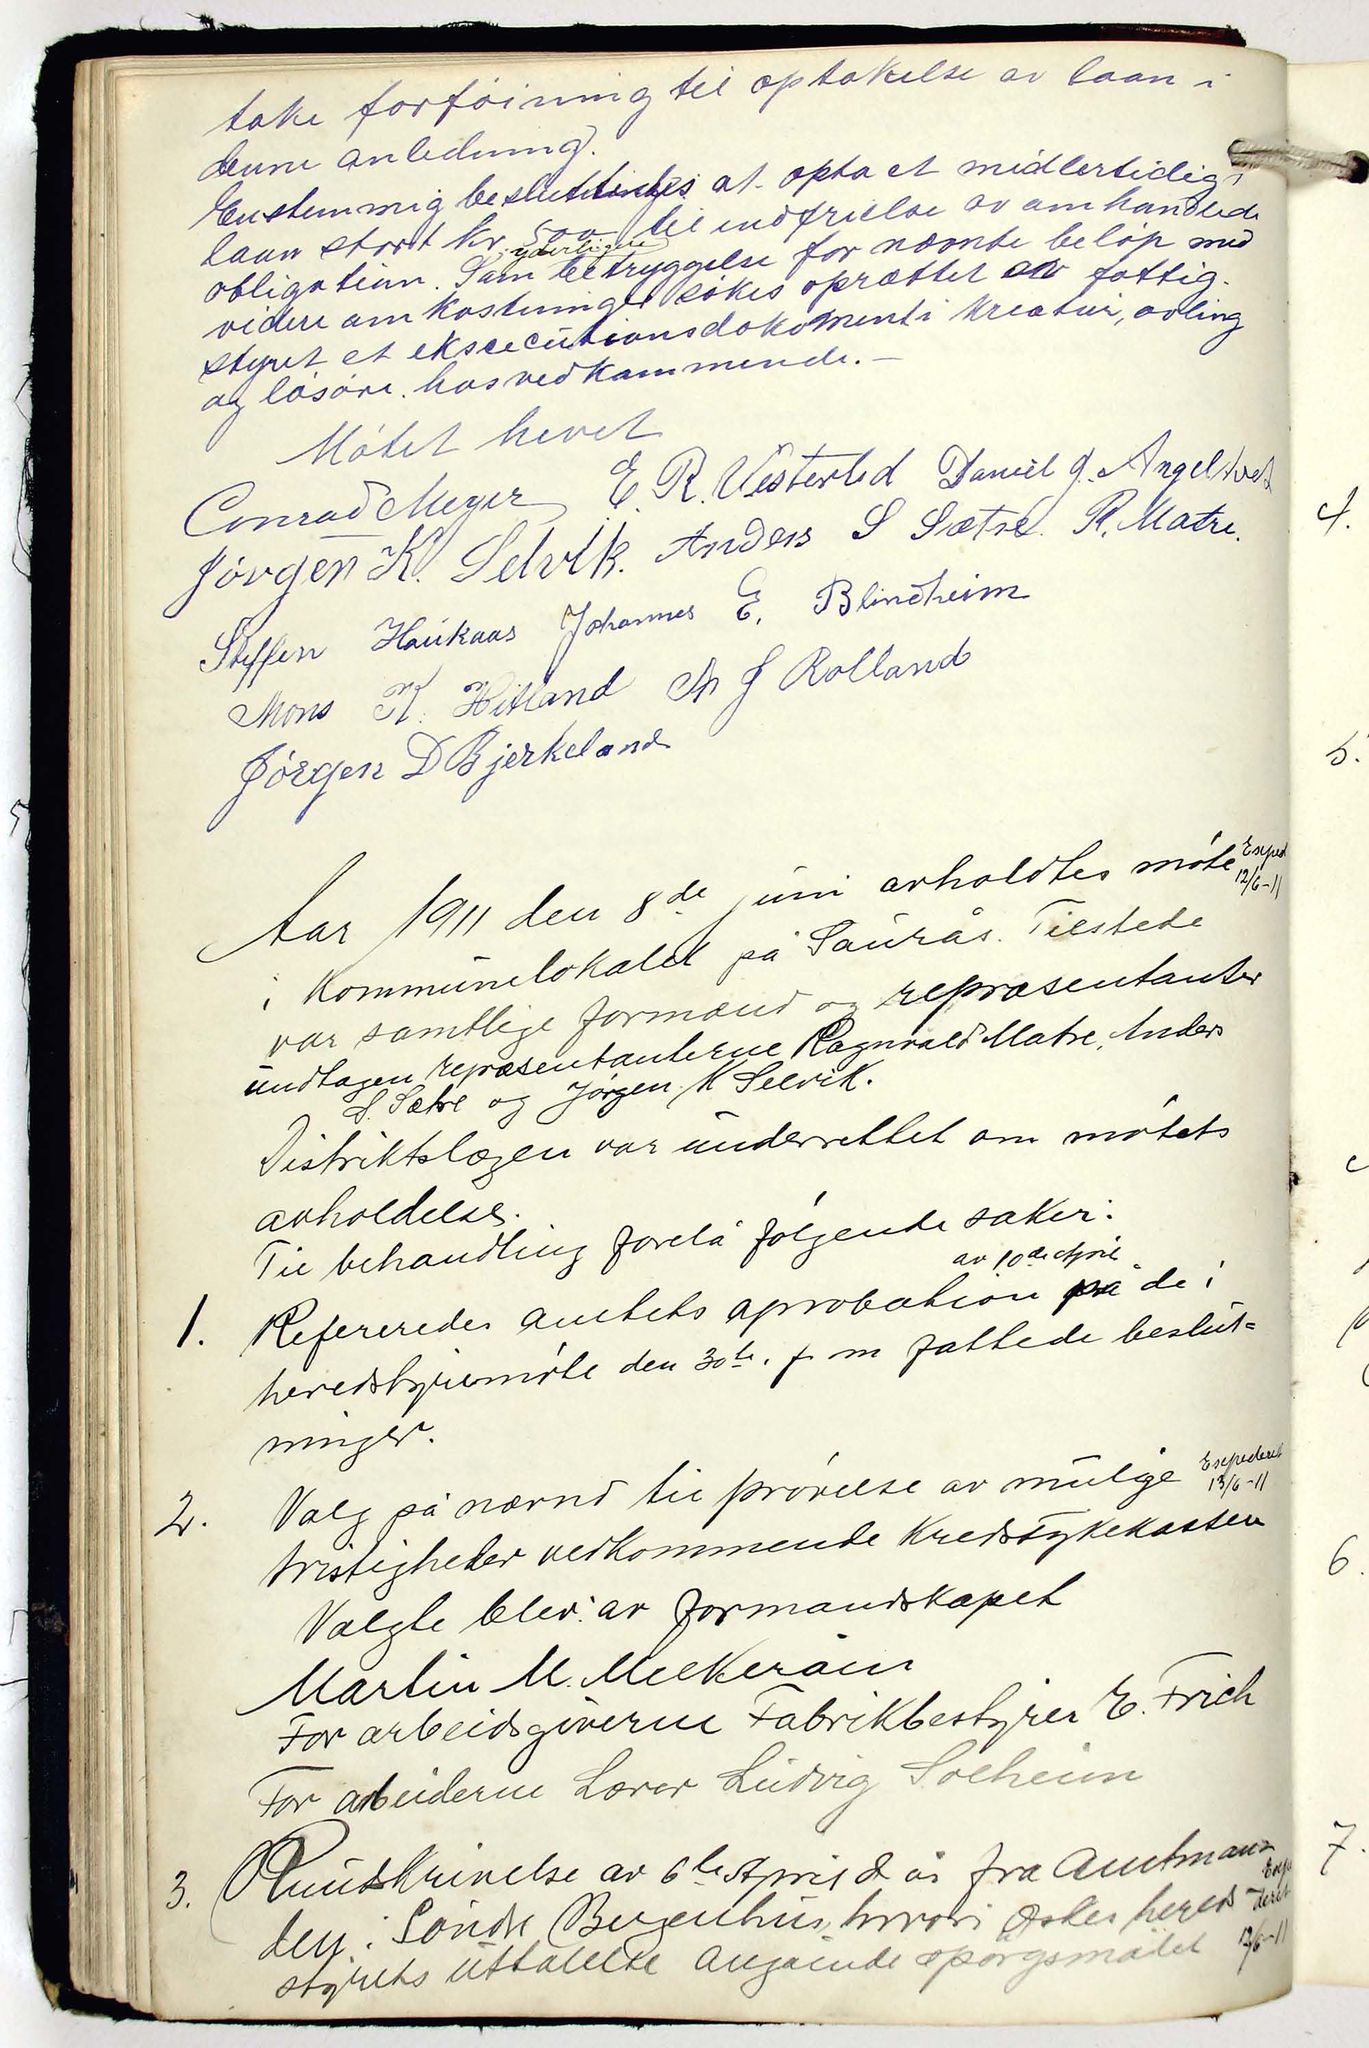 take forføining til optakelse av laan i
denne anledning.
Enstemmig besluttedes at opta et midlertidig
laan stort kr. 500 til indfrielse av omhandlede
obligation. Som yderligere betryggelse for nævnte beløp med
videre omkostninger søkes oprættet av fattig-
styret et eksecutionsdokument i kreatur, avling
og løsøre hos vedkommende. –
Møtet hevet
Conrad Meyer E. R. Vesterlid Daniel J. Angeltvet
Jørgen K. Selvik. Anders S Sætre. R. Matre.
Steffen Haukaas Johannes E. Blindheim
Mons K. Hitland A J Rolland
Jørgen D Bjerkeland
Aar 1911 den 8de juni avholdtes møte
Exped
12/6-11
i Kommunelokalet på Saurås. Tilstede
var samtlige formænd og repræsentanter
undtagen repræsentanterne Ragnvald Matre, Anders
S. Sætre og Jørgen K Selvik.
Distriktslægen var underrettet om møtets
avholdelse.
Til behandling forelå følgende saker:
1. Refereredes amtets aprobation av 10de April på de i
heredstyremøte den 30te. f. m fattede beslut=
ninger.
2. Valg på nævnd til prøvelse av mulige
Expederet
13/6-11
tvistigheder vedkommende Kredssykekassen
Valgte blev: av formandskapet
Martin M. Melkeråen
For arbeidsgiverne Fabrikbestyrer E. Frich
For arbeiderne Lærer Ludvig Solheim
3. Rundskrivelse av 6te April d. år fra Amtman=
den i Søndre Bergenhus, hvori øskes hereds
Expe
deret
12/6-11
styrets uttalelse angående spørgsmålet
4.
5.
6.
7.